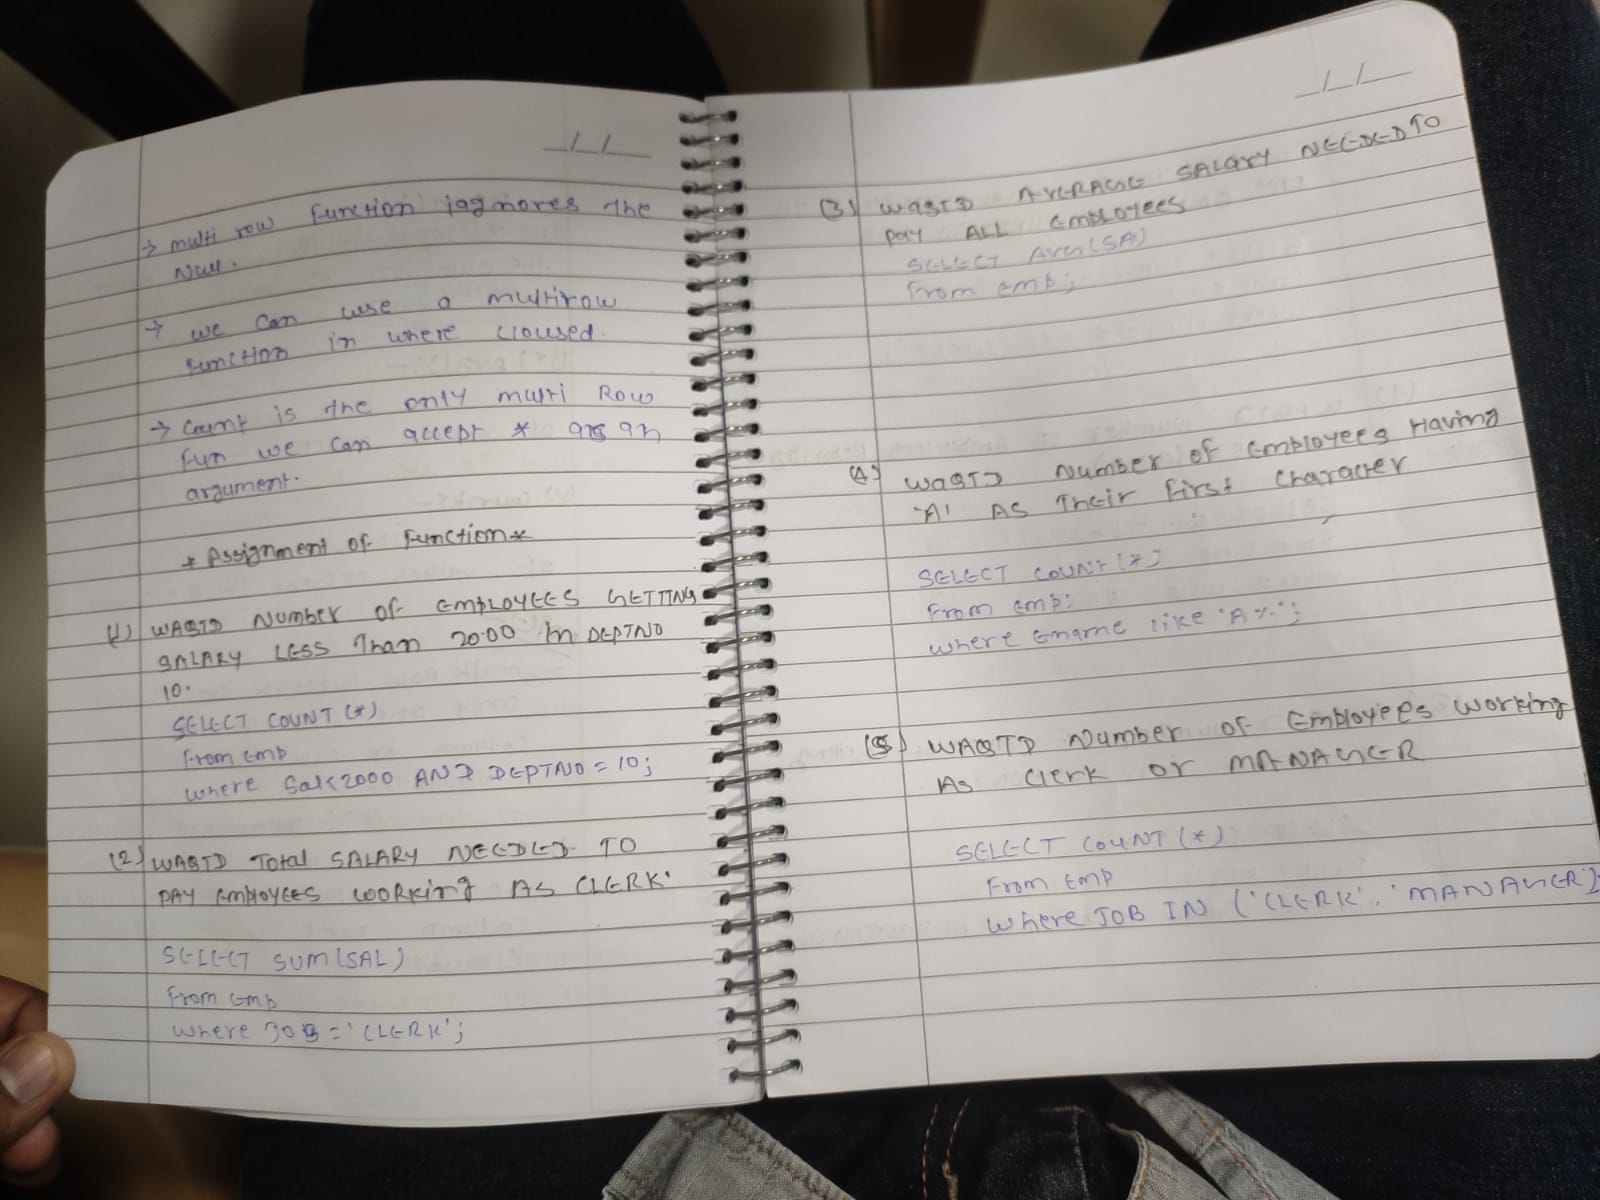 → multi row function iagmores the
Null.
→ we can use a multirow
function in where cloused.
→ Count is the only multi Row
fun we can accept * ars an
argument.
* Assignment of function *
(1) WAQTD Number OF EMPLOYEES GETTING
SALARY LESS Than 2000 In DEPTNO
10.
SELECT COUNT (*)
From Emp
where Sal<2000 AND DEPTNO = 10;
(2) WAQTD Total SALARY NEEDED TO
PAY Employees WORKing AS CLERK'
SELECT SUM (SAL)
From Emp
where JOB = 'CLERK';
(3) WAQTD AVERAGE SALARY NEEDED TO
pay ALL Employees
SELECT AVG(SAl)
From emp;
(4) WAQTD Number of Employees Having
'A' AS Their First Character
SELECT COUNT (*)
From Emp;
where Ename like 'A%';
(5) WAQTD Number of Employees working
As Clerk or MANAGER
SELECT Count (*)
From Emp
where JOB IN ('CLERK', 'MANAGER');